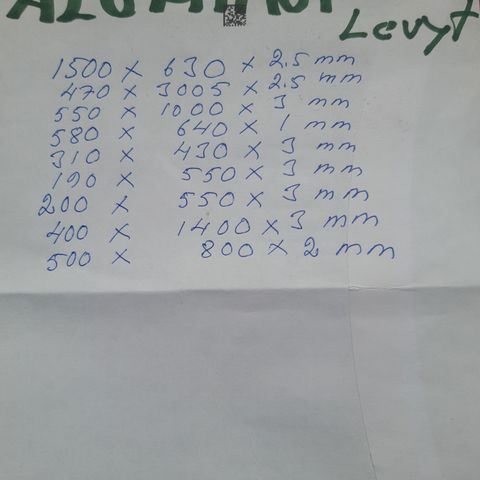 Levyt
1500 x 630 x 2.5 mm
470 x 3005 x 2.5 mm
550 x 1000 x 3 mm
580 x 640 x 1 mm
310 x 430 x 3 mm
190 x 550 x 3 mm
200 x 550 x 3 mm
400 x 1400 x 3 mm
500 x 800 x 2 mm